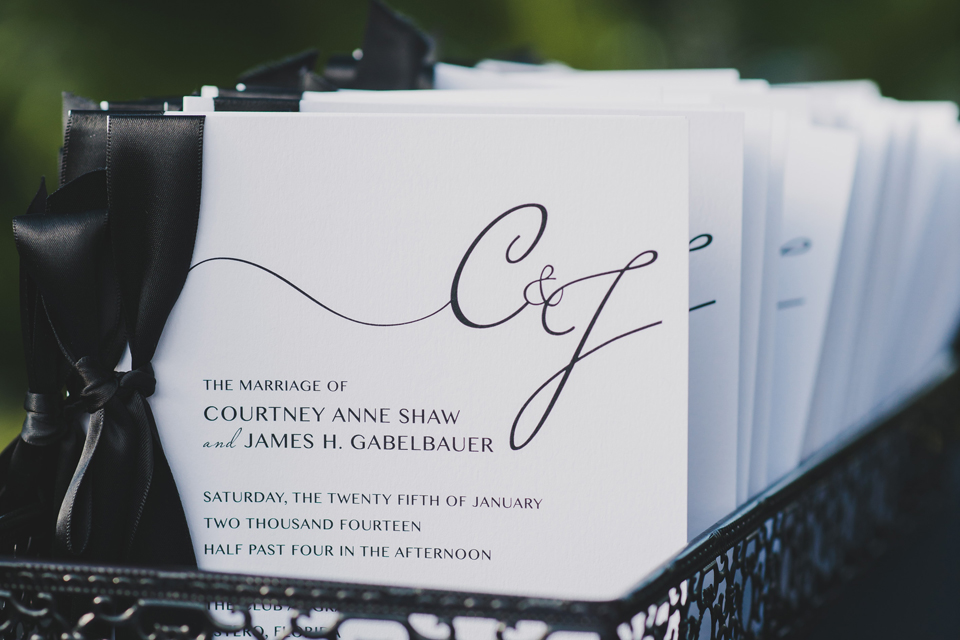 C&J
THE MARRIAGE OF
COURTNEY ANNE SHAW
and JAMES H. GABELBAUER
SATURDAY, THE TWENTY FIFTH OF JANUARY
TWO THOUSAND FOURTEEN
HALF PAST FOUR IN THE AFTERNOON
THE CLUB
ESTERO, FLORIDA